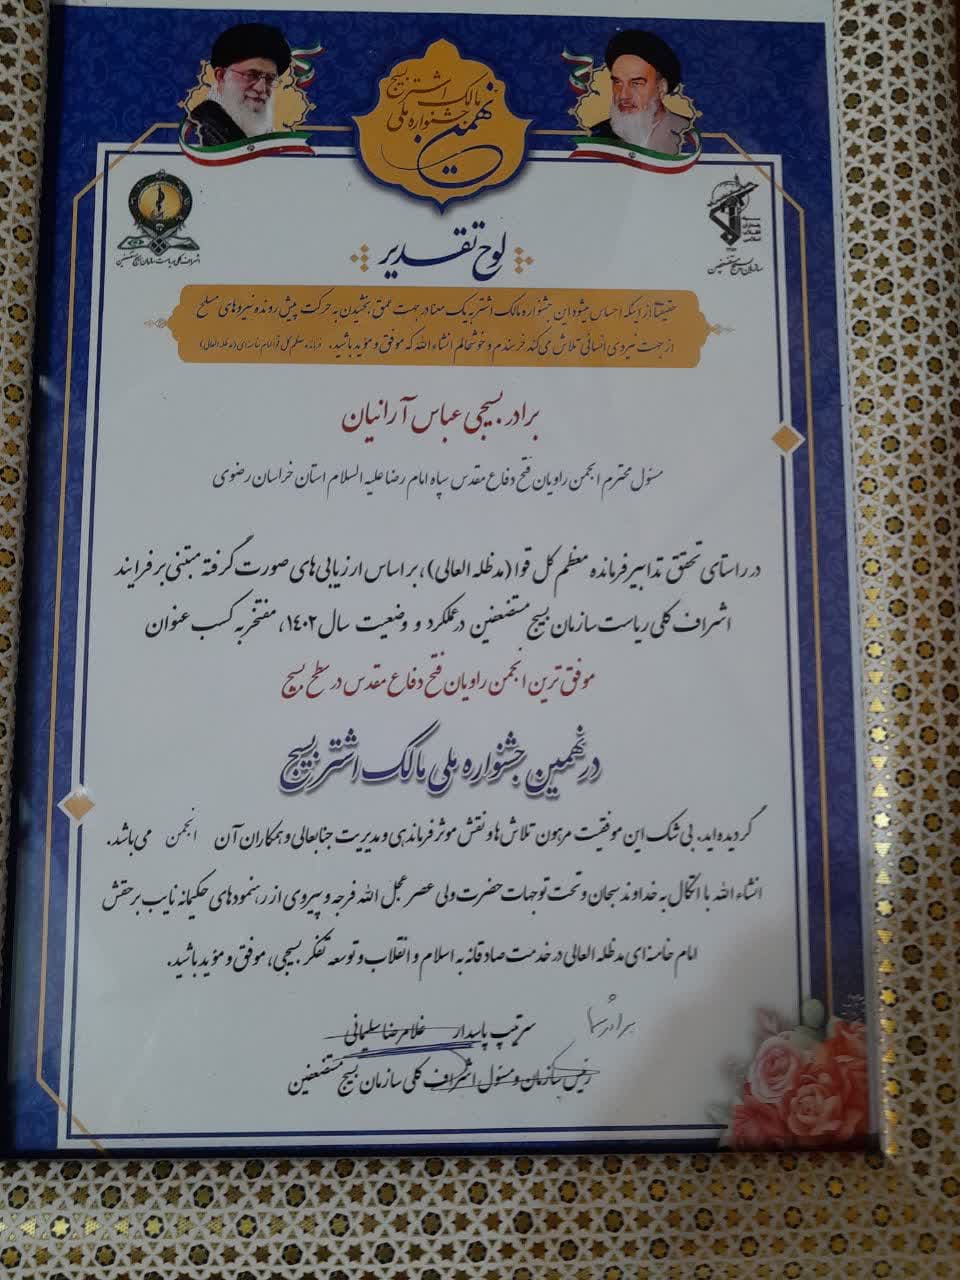 نهمین
جشنواره ملی
مالک اشتر بسیج
سپاه
پاسداران
انقلاب
اسلامی
سازمان بسیج مستضعفین
اشراف کلی ریاست سازمان بسیج مستضعفین
لوح تقدیر
حقیقتاً از اینکه احساس میشود این جشنواره مالک اشتر به یک معنا در جهت عمق بخشیدن به حرکت پیش رونده نیروهای مسلح
از جهت نیروی انسانی تلاش می‌کند خرسندم و خوشحالم انشاءالله که موفق و مؤید باشید. فرمانده معظم کل قوا امام خامنه‌ای (مدظله العالی)
برادر بسیجی عباس آرانیان
مسئول محترم انجمن راویان فتح دفاع مقدس سپاه امام رضا علیه السلام استان خراسان رضوی
در راستای تحقق تدابیر فرمانده معظم کل قوا (مدظله العالی)، بر اساس ارزیابی‌های صورت گرفته مبتنی بر فرایند
اشراف کلی ریاست سازمان بسیج مستضعفین در عملکرد و وضعیت سال ۱۴۰۲، مفتخر به کسب عنوان
موفق ترین انجمن راویان فتح دفاع مقدس در سطح بسیج
در نهمین جشنواره ملی مالک اشتر بسیج
گردیده‌اید. بی شک این موفقیت مرهون تلاش‌ها و نقش موثر فرماندهی و مدیریت جنابعالی و همکاران آن انجمن می باشد.
انشاءالله با اتکال به خداوند سبحان و تحت توجهات حضرت ولی عصر عجل الله فرجه و پیروی از رهنمودهای حکیمانه نایب برحقش
امام خامنه‌ای مدظله العالی در خدمت صادقانه به اسلام و انقلاب و توسعه تفکر بسیجی، موفق و مؤید باشید.
سرتیپ پاسدار غلامرضا سلیمانی
رئیس سازمان و مسئول اشراف کلی سازمان بسیج مستضعفین